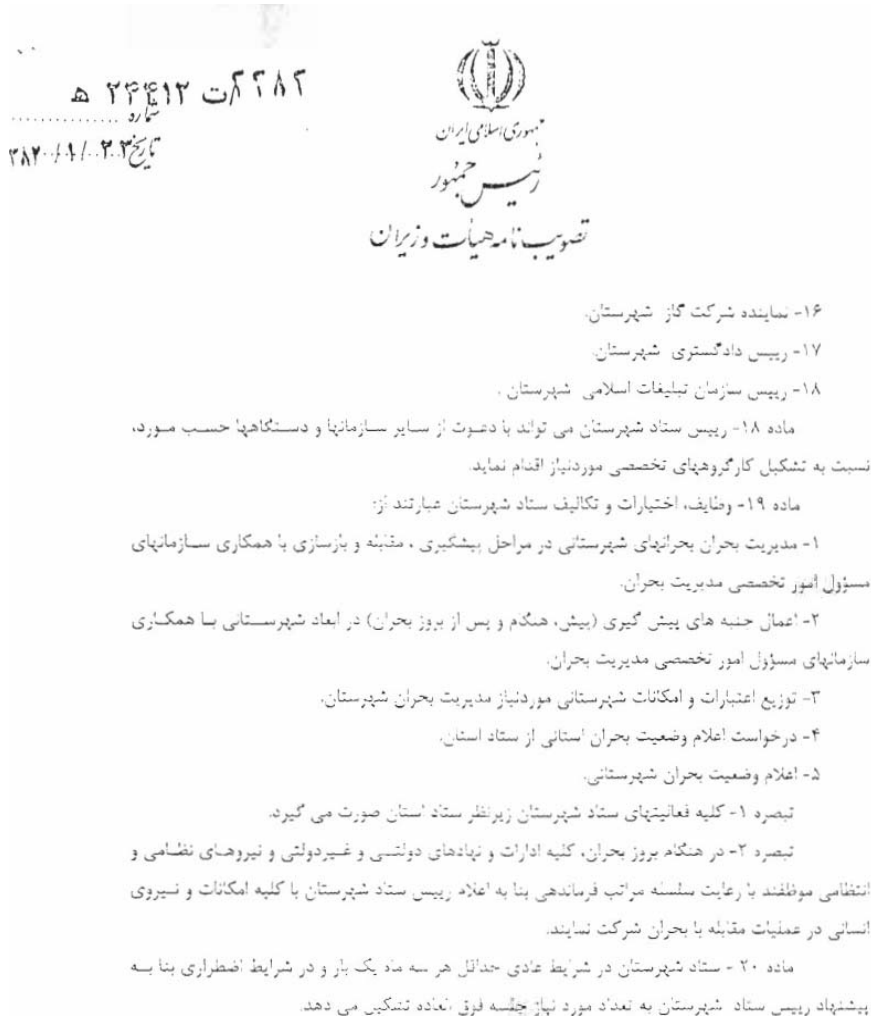 شماره ۲۸۲۸۲ت ۲۴۴۱۲ هـ
تاریخ
جمهوری اسلامی ایران
رئیس جمهور
تصویب‌نامه هیأت وزیران
۱۶- نماینده شرکت گاز شهرستان.
۱۷- رییس دادگستری شهرستان.
۱۸- رییس سازمان تبلیغات اسلامی شهرستان .
ماده ۱۸- رییس ستاد شهرستان می تواند با دعوت از سایر سازمانها و دستگاهها حسب مورد،
نسبت به تشکیل کارگروههای تخصصی موردنیاز اقدام نماید.
ماده ۱۹- وظایف، اختیارات و تکالیف ستاد شهرستان عبارتند از:
۱- مدیریت بحران بحرانهای شهرستانی در مراحل پیشگیری ، مقابله و بازسازی با همکاری سازمانهای
مسؤول امور تخصصی مدیریت بحران.
۲- اعمال جنبه های پیش گیری (پیش، هنگام و پس از بروز بحران) در ابعاد شهرستانی با همکاری
سازمانهای مسؤول امور تخصصی مدیریت بحران.
۳- توزیع اعتبارات و امکانات شهرستانی موردنیاز مدیریت بحران شهرستان.
۴- درخواست اعلام وضعیت بحران استانی از ستاد استان.
۵- اعلام وضعیت بحران شهرستانی.
تبصره ۱- کلیه فعالیتهای ستاد شهرستان زیرنظر ستاد استان صورت می گیرد.
تبصره ۲- در هنگام بروز بحران، کلیه ادارات و نهادهای دولتی و غیردولتی و نیروهای نظامی و
انتظامی موظفند با رعایت سلسله مراتب فرماندهی بنا به اعلام رییس ستاد شهرستان با کلیه امکانات و نیروی
انسانی در عملیات مقابله با بحران شرکت نمایند.
ماده ۲۰ - ستاد شهرستان در شرایط عادی حداقل هر سه ماه یک بار و در شرایط اضطراری بنا به
پیشنهاد رییس ستاد شهرستان به تعداد مورد نیاز جلسه فوق العاده تشکیل می دهد.